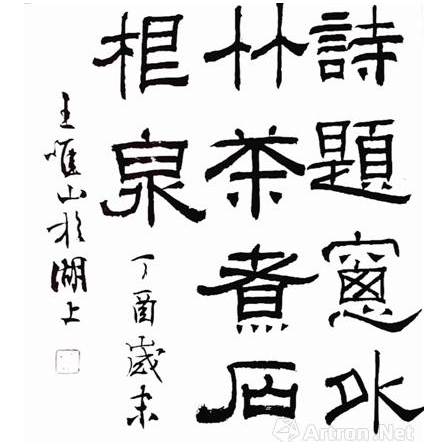 詩題窗外
竹茶煮石
根泉
丁酉歲末
王惟山於湖上
Artron.Net